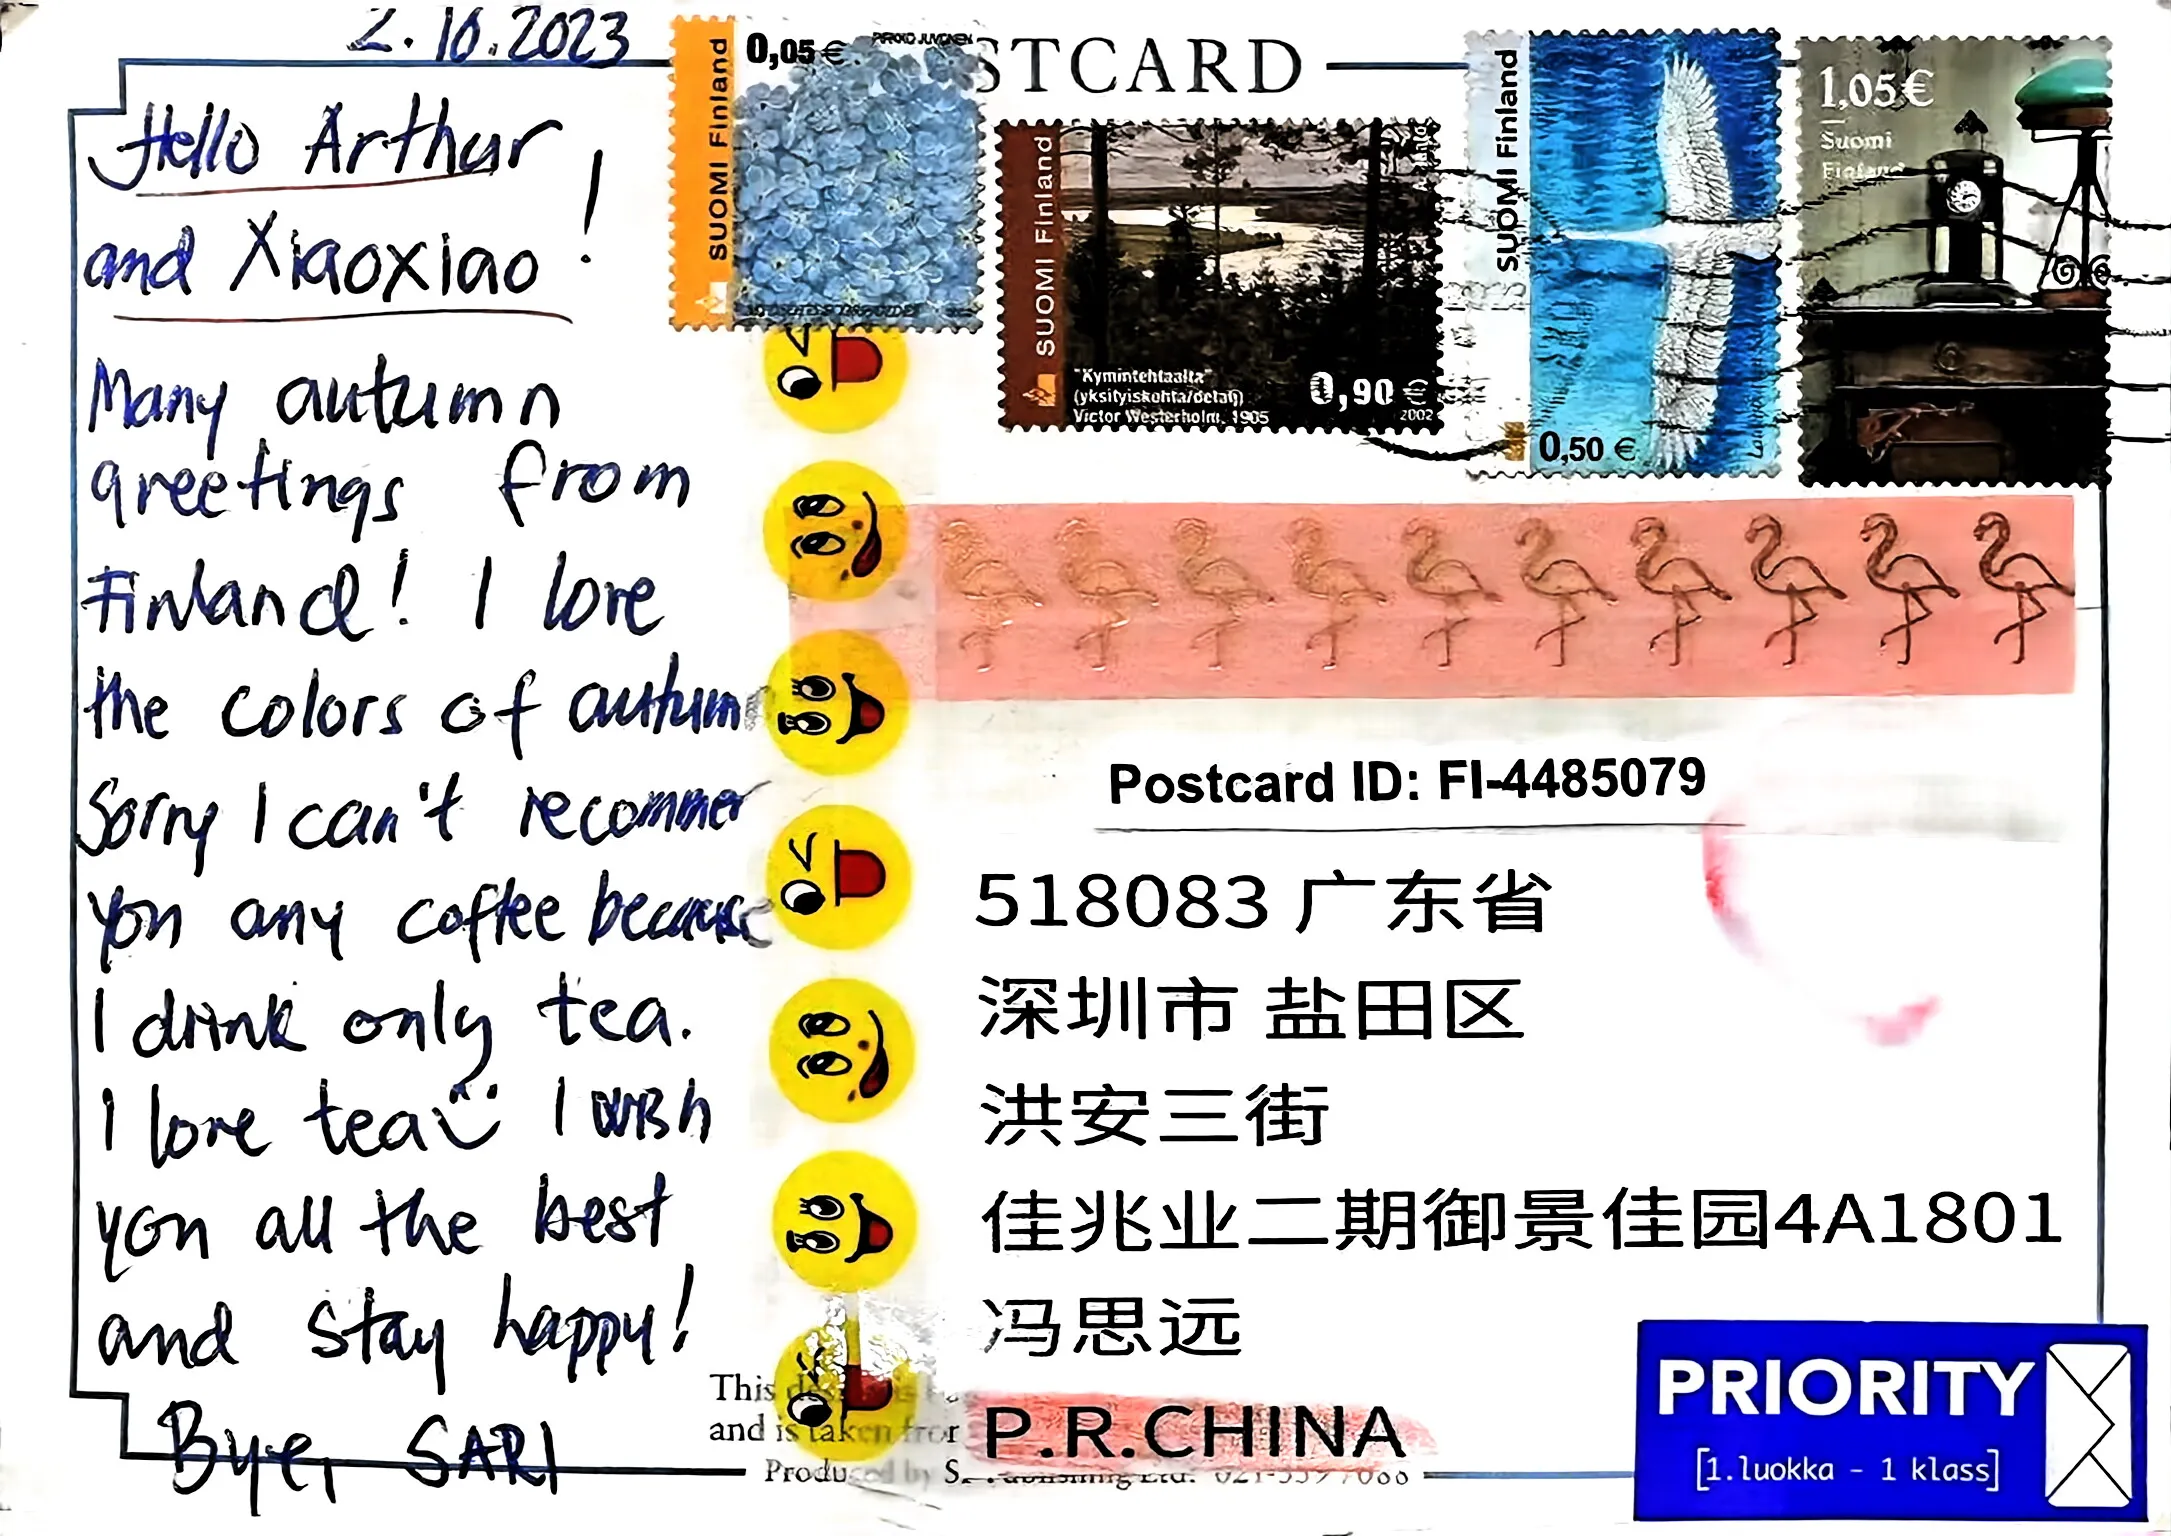 2.10.2023
Hello Arthur
and Xiaoxiao!
Many autumn
greetings from
Finland! I love
the colors of autumn
Sorry I can't recommen
you any coffee because
I drink only tea.
I love tea I wish
you all the best
and stay happy!
Bye, SARI
STCARD
SUOMI Finland
0,05 €
PIRKKO JUVONEN
SUOMI Finland
"Kymintehtaalta"
(yksityiskohta/detalj)
Victor Westerholm, 1905
0,90 €
2002
SUOMI Finland
0,50 €
1,05€
Suomi
Finland
Postcard ID: FI-4485079
518083 广东省
深圳市 盐田区
洪安三街
佳兆业二期御景佳园4A1801
冯思远
P.R.CHINA
This
and is taken from
Produced by
PRIORITY
[1.luokka - 1 klass]